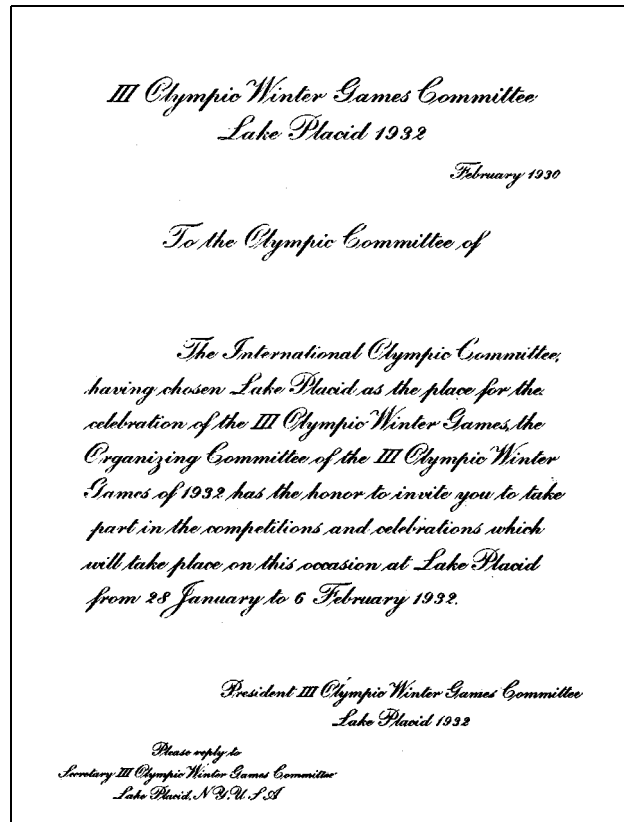 III Olympic Winter Games Committee
Lake Placid 1932
February 1930
To the Olympic Committee of
The International Olympic Committee,
having chosen Lake Placid as the place for the
celebration of the III Olympic Winter Games, the
Organizing Committee of the III Olympic Winter
Games of 1932 has the honor to invite you to take
part in the competitions and celebrations which
will take place on this occasion at Lake Placid
from 28 January to 6 February 1932.
President III Olympic Winter Games Committee
Lake Placid 1932
Please reply to
Secretary III Olympic Winter Games Committee
Lake Placid, N Y. U S A